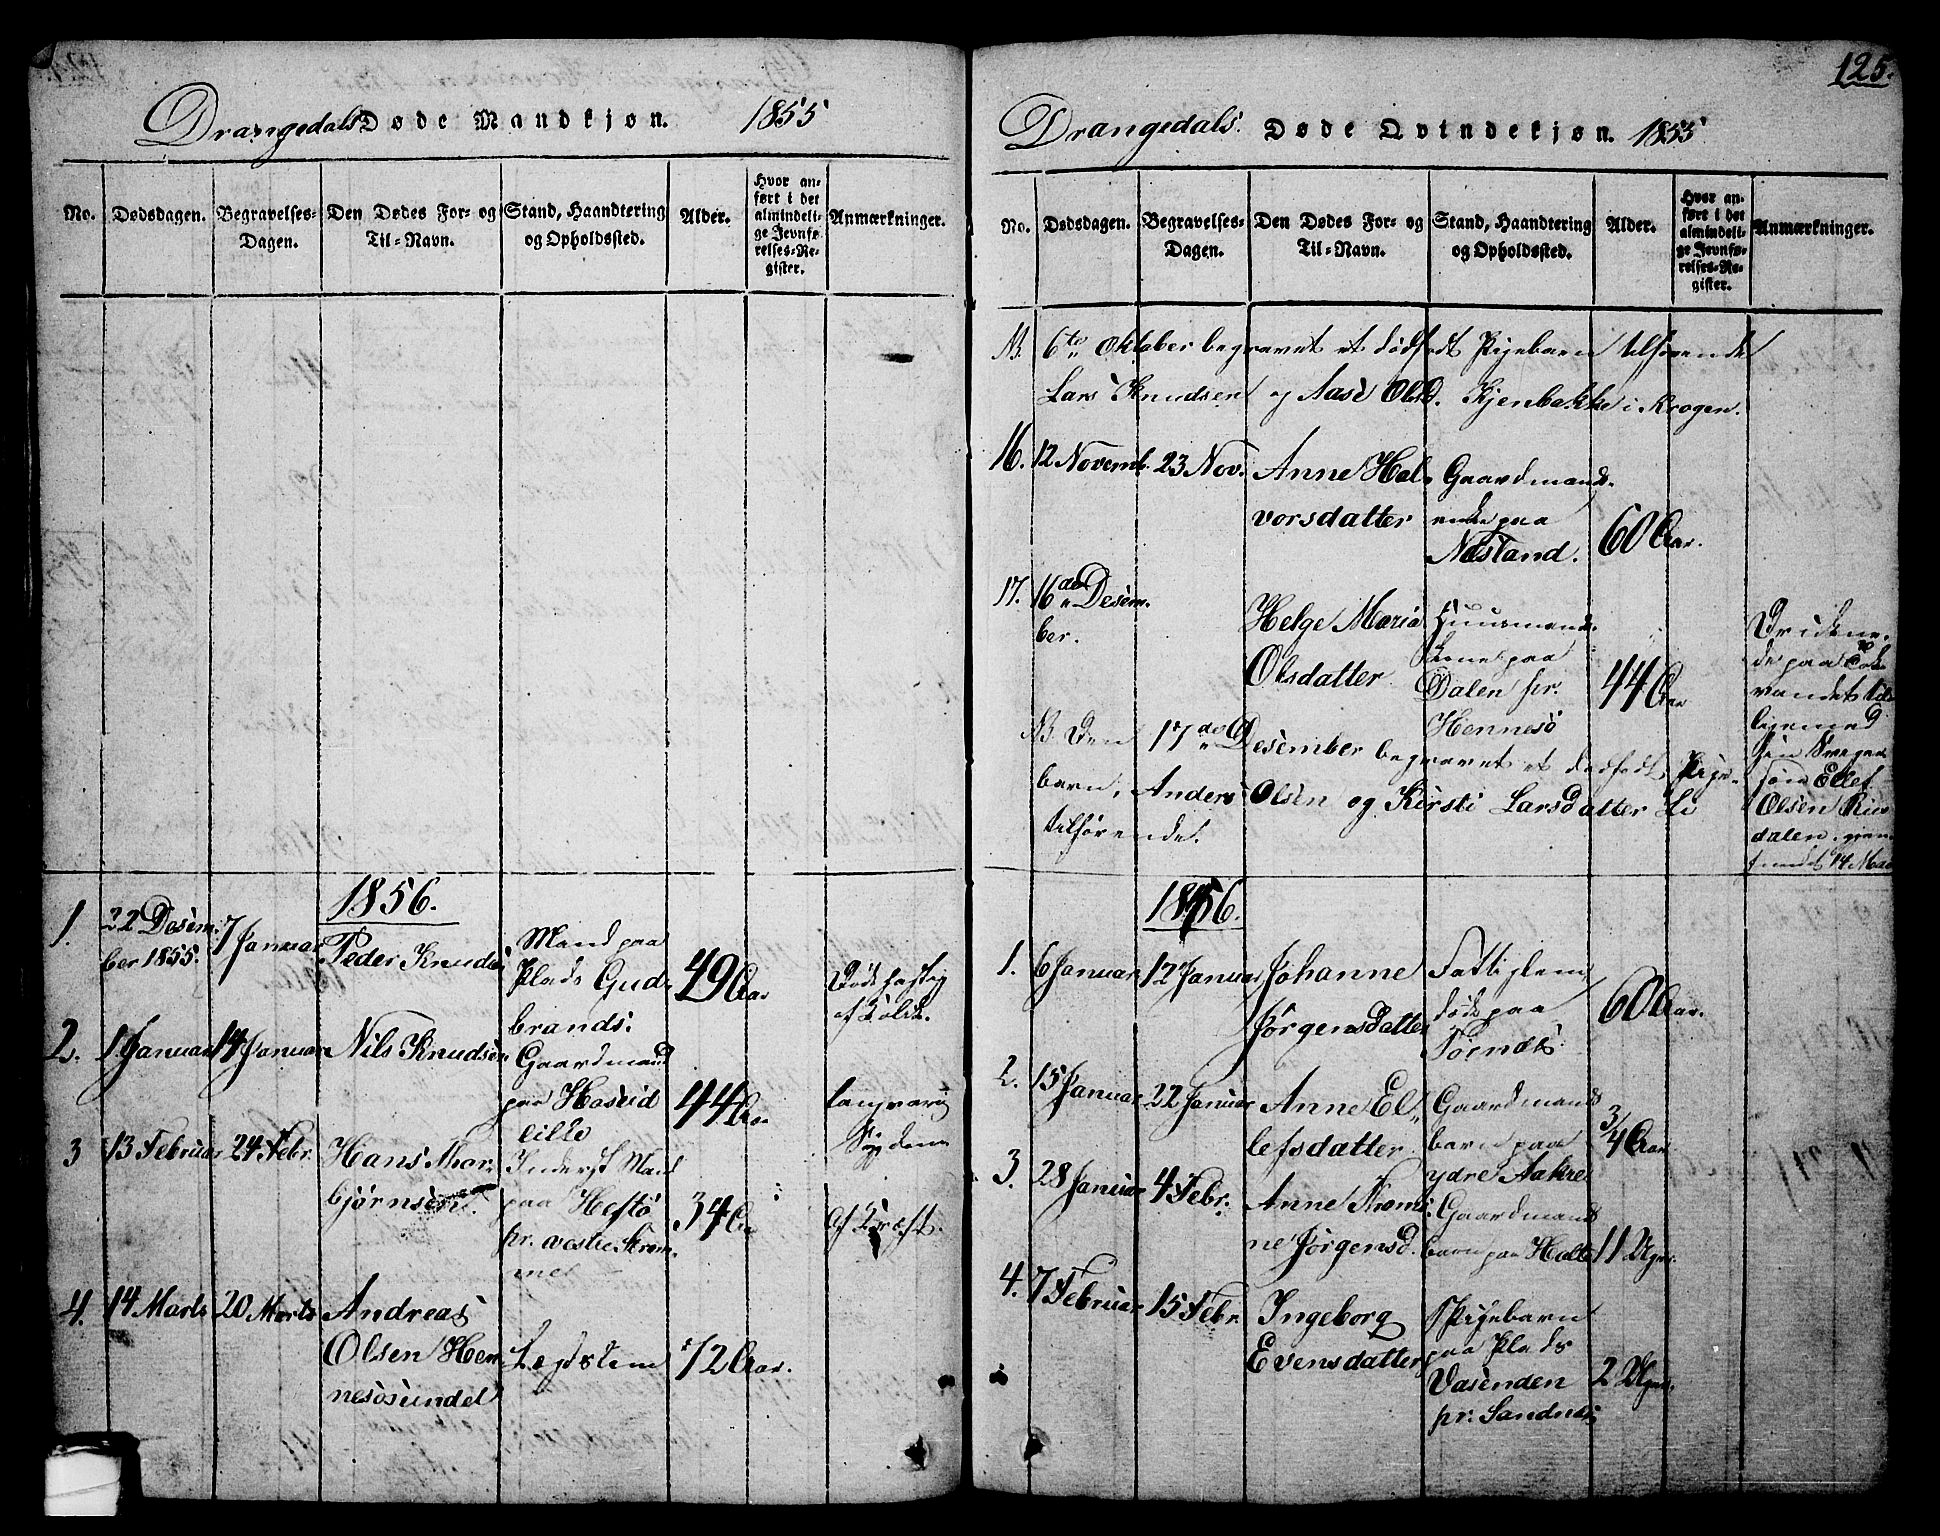 Drangedals Døde Mandkjøn. 1855
No. Dødsdagen. Begravelses-Dagen. Den Dødes For- og Til-Navn. Stand, Haandtering og Opholdssted. Alder. Hvor anført i det almindelige Jevnførelses-Register. Anmærkninger.
1856.
1. 22 Desem- 7 Januar Peder Knudsen Mand paa
ber 1855.
Plads Gud-
brands: 49 Aar Død hastig
af Kolik.
2. 1 Januar 14 Januar Nils Knudsen Gaardmand
paa
lille 44 Aar langvarig
Sygdom
3 13 Februar 24 Febr. Hans Thor-
bjørnsen. Inderst Mand
paa Heftø
pr. vestre Strøm-
met 34 Aar af Kræft.
4. 14 Marts 20 Marts Andreas
Olsen Hen-
nesøsundet Legdslem 72 Aar.
125.
Drangedals. Døde Qvindekjøn. 1855
No. Dødsdagen. Begravelses-Dagen. Den Dødes For- og Til-Navn. Stand, Haandtering og Opholdssted. Alder. Hvor anført i det almindelige Jevnførelses-Register. Anmærkninger.
NB. 6te Oktober begravet et dødfødt Pigebarn tilhørende
Lars Knudsen og Aase Olsd. Kjenbakke i Krogen.
16. 12 Novemb. 23 Nov. Anne Hal-
vorsdatter Gaardmands-
enke paa
Næsland. 60 Aar.
17. 16de Desem-
ber. Helge Maria
Olsdatter Huusmands-
kone paa
Dalen pr.
Hennesø 44 Aar
Druknede paa
vandet til-
ligemed
sin Sviger-
søn Ellef
Olsen
dalen, gjen-
fundet 14 Mai
NB. Den 17de Desember begravet et dødfødt Pige-
barn, Anders Olsen og Kirsti Larsdatter Li
tilhørende.
1856.
1. 6 Januar 12 Januar Johanne
Jørgensdatter Fattiglem
død paa
60 Aar.
2. 15 Januar 22 Januar Anne El-
lefsdatter Gaardmands
barn paa
ydre Aakre 3/4 Aar
3. 28 Januar 4 Febr. Anne
ne Jørgensd. Gaardmands
barn paa 11 Uger
4. 7 Februar 15 Febr. Ingeborg
Evensdatter Pigebarn
paa Plads
Vasenden
pr. Sandnes 2 Uger.